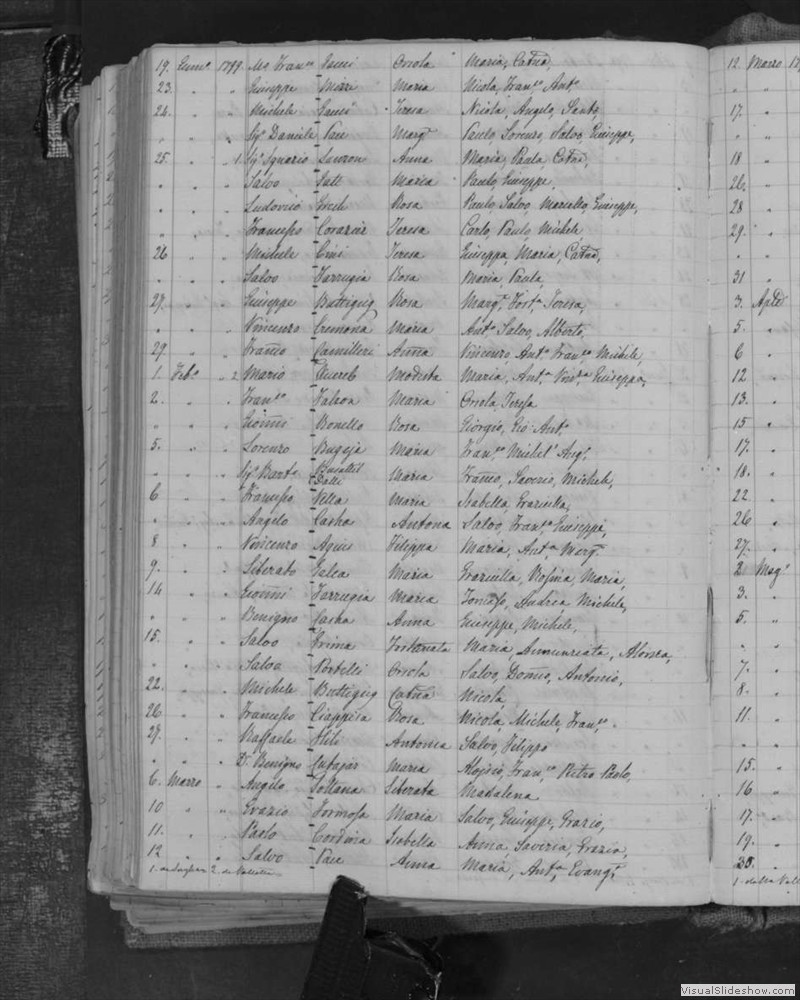 19. Genn.o 1799 Mo. Fran.co Gauci Orsola Maria, Catna,
23. " " Giuseppe Mizzi Maria Nicola, Fran.co Ant.o
24. " " Michele Gauci Teresa Nicola, Angelo, Santo,
" " " Sig.r Daniele Pace Marg.ta Paulo, Lorenzo, Salvo, Giuseppe,
25. " " 1. Sig.r Ignazio Anna Maria, Paula, Catna,
" " " Salvo Maria Paulo, Giuseppe,
" " " Ludovico Rosa Paulo, Salvo, Giuseppe,
" " " Francesco Teresa Carlo, Paulo, Michele
26 " " Michele Cini Teresa Giuseppa, Maria, Catna,
" " " Salvo Farrugia Rosa Maria, Paula,
27. " " Giuseppe Buttigieg Rosa Marg.ta Teresa,
" " " Vincenzo Cremona Maria Ant.o Salvo, Alberto,
29. " " Franco Camilleri Anna Vincenzo, Ant.o Fran.co Michele,
1. Feb.o " 2 Mario Xuereb Modesta Maria, Ant.a Giuseppa,
2. " " Fran.co Falzon Maria Orsola, Teresa
" " " Gioñni Bonello Rosa Giorgio, Gio: Ant.o
5. " " Lorenzo Bugeja Maria Fran.co Michel' Ang.o
" " " Sig.r Bart.o Busuttil Dalli Maria Franco, Saverio, Michele,
6 " " Francesco Vella Maria Isabella, Graziulla,
" " " Angelo Casha Antona Salvo, Fran.co Giuseppe,
8 " " Vincenzo Agius Filippa Maria, Ant.a Marg.ta
9. " " Liberato Galea Maria Graziulla, Rosina, Maria,
14 " " Gioñni Farrugia Maria Tomaso, Andrea, Michele,
" " " Benigno Casha Anna Giuseppe, Michele,
15. " " Salvo Grima Fortunata Maria Annunciata, Aloisea,
" " " Salvo Portelli Orsola Salvo, Domco, Antonio,
22. " " Michele Buttigieg Catna Nicola,
26 " " Francesco Ciappara Rosa Nicola, Michele, Fran.co
27. " " Raffaele Hili Antonia Salvo, Filippo
" " " Dr. Benigno Cutajar Maria Aloisio, Fran.co Pietro Paolo,
6. Marzo " Angelo Sultana Liberata Madalena
10 " " Grazio Formosa Maria Salvo, Giuseppe, Grazio,
11. " " Paolo Cordina Isabella Anna, Saveria, Grazia,
12 " " Salvo Pace Anna Maria, Ant.a Evang.ta
2. da Valletta
12 Marzo 17
17.
18
26.
28
29.
31
3. Aple
5.
6
12
13.
15
17.
18.
22
26
27.
2 Mag.o
3.
5.
7.
8.
11.
15.
16
17.
19.
30.
1. della Vall
VisualSlideshow.com